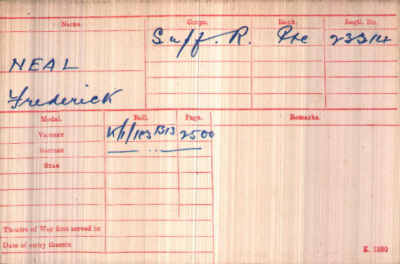 Name. Corps. Rank. Regtl. No.
Suff. R. Pte 23314
NEAL
Frederick
Medal. Roll. Page. Remarks.
VICTORY K/1/103 B13 2500
BRITISH — " —
STAR
Theatre of War first served in
Date of entry therein
K. 1380